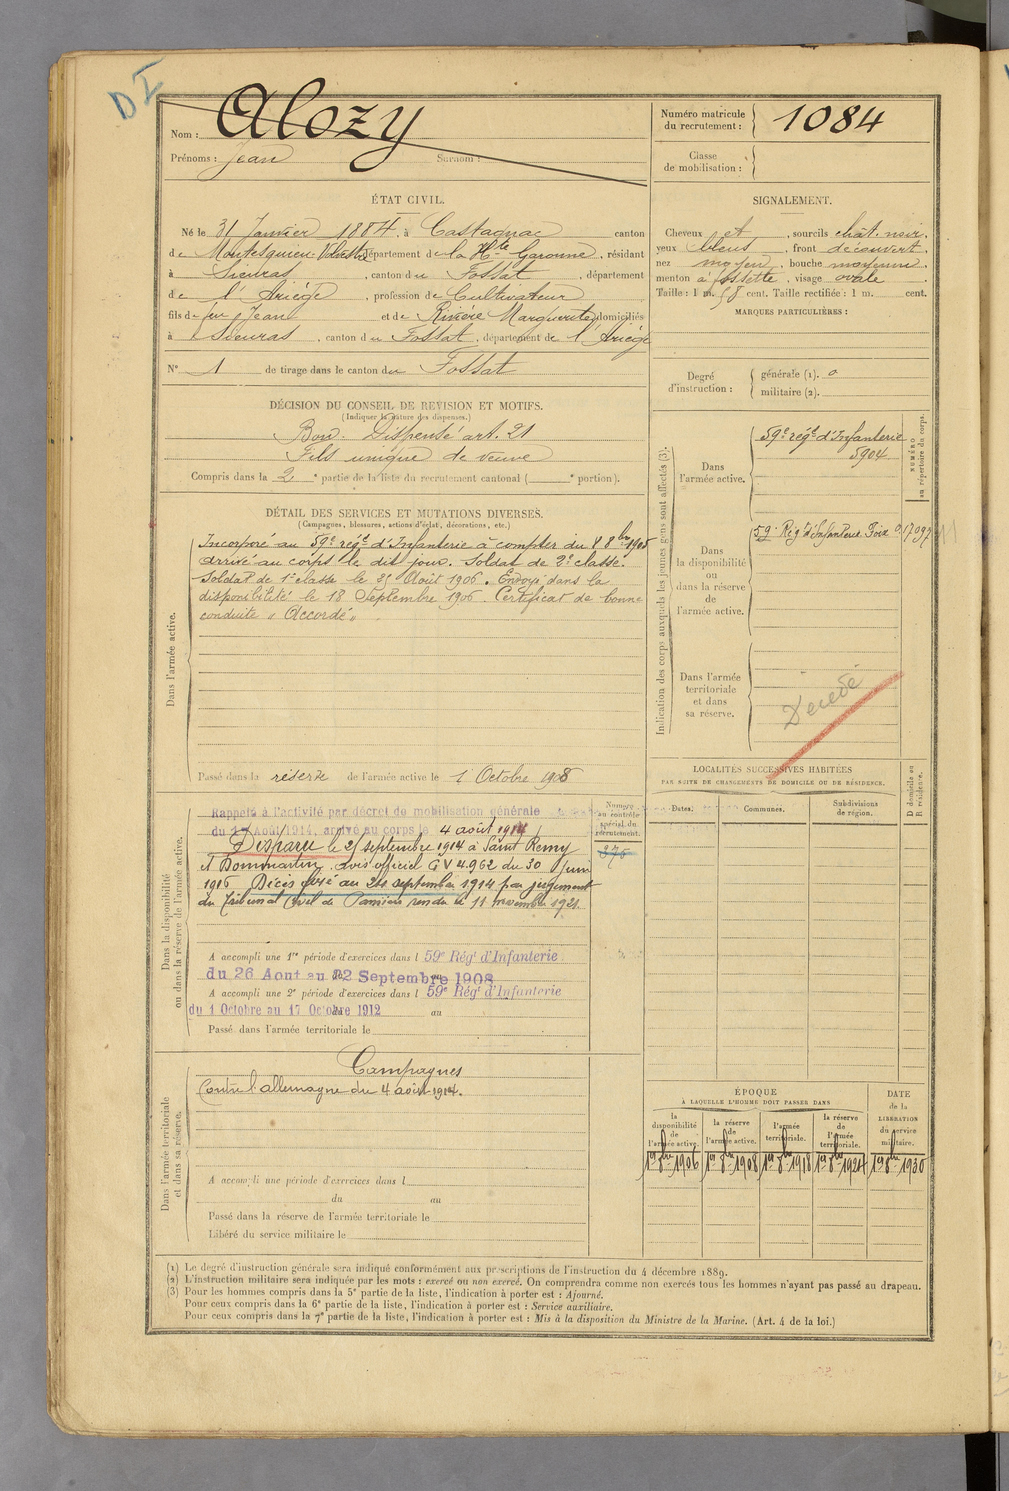 D I
Nom : Alozy
Prénoms : Jean Surnom :
Numéro matricule du recrutement : 1084
Classe de mobilisation :
ÉTAT CIVIL.
Né le 31 Janvier 1884, à Castagnac canton
de Montesquieu-Volvestre, département de la Hte Garonne, résidant
à Sieuras, canton du Fossat, département
de l'Ariège, profession de Cultivateur
fils de feu Jean et de Rivière Marguerite, domiciliés
à Sieuras, canton du Fossat, département de l'Ariège
N° 1 de tirage dans le canton du Fossat
SIGNALEMENT.
Cheveux et, sourcils chât. noir,
yeux bleus, front découvert,
nez moyen, bouche moyenne,
menton à fossette, visage ovale
Taille : 1 m. 58 cent. Taille rectifiée : 1 m. cent.
MARQUES PARTICULIÈRES :
Degré d'instruction : générale (1). 0
militaire (2).
DÉCISION DU CONSEIL DE REVISION ET MOTIFS.
(Indiquer la nature des dispenses.)
Bon. Dispensé art. 21
Fils unique de veuve
Compris dans la 2e partie de la liste du recrutement cantonal ( e portion).
DÉTAIL DES SERVICES ET MUTATIONS DIVERSES.
(Campagnes, blessures, actions d'éclat, décorations, etc.)
Dans l'armée active.
Incorporé au 59e régt d'Infanterie à compter du 8 8bre 1905
arrivé au corps le dit jour. Soldat de 2e classe.
Soldat de 1e classe le 31 Août 1906. Envoyé dans la
disponibilité le 18 Septembre 1906. Certificat de bonne
conduite "Accordé"
Passé dans la réserve de l'armée active le 1 Octobre 1908
Indication des corps auxquels les jeunes gens sont affectés (3).
NUMÉRO au répertoire du corps.
Dans l'armée active.
59e régt d'Infanterie
5904
Dans la disponibilité ou dans la réserve de l'armée active.
59e Rég d'Infanterie Foix
Dans l'armée territoriale et dans sa réserve.
Décédé
Dans la disponibilité ou dans la réserve de l'armée active.
Rappelé à l'activité par décret de mobilisation générale
du 1er Août 1914, arrivé au corps le 4 août 1914
Disparu le 25 septembre 1914 à Saint Remy
et Dommartin. avis officiel GV 4.962 du 30 Juin
1916 Décès fixé au 24 septembre 1914 par jugement
du Tribunal Civil de Pamiers rendu le 11 novembre 1921
Numéro au contrôle spécial du recrutement.
376
A accompli une 1re période d'exercices dans l 59e Régt d'Infanterie
du 26 Aout au 22 Septembre 1908
A accompli une 2e période d'exercices dans l 59e Régt d'Infanterie
du 1 Octobre au 17 Octobre 1912 au
Passé dans l'armée territoriale le
LOCALITÉS SUCCESSIVES HABITÉES
PAR SUITE DE CHANGEMENTS DE DOMICILE OU DE RÉSIDENCE.
Dates. Communes. Subdivisions de région. D domicile ou R résidence.
Dans l'armée territoriale et dans sa réserve.
Campagnes
Contre l'allemagne du 4 août 1914.
A accompli une période d'exercices dans l
du au
Passé dans la réserve de l'armée territoriale le
Libéré du service militaire le
ÉPOQUE
À LAQUELLE L'HOMME DOIT PASSER DANS
la disponibilité de l'armée active. la réserve de l'armée active. l'armée territoriale. la réserve de l'armée territoriale. DATE de la LIBÉRATION du service militaire.
1er 8bre 1906 1er 8bre 1908 1er 8bre 1918 1er 8bre 1924 1er 8bre 1930
(1) Le degré d'instruction générale sera indiqué conformément aux prescriptions de l'instruction du 4 décembre 1889.
(2) L'instruction militaire sera indiquée par les mots : exercé ou non exercé. On comprendra comme non exercés tous les hommes n'ayant pas passé au drapeau.
(3) Pour les hommes compris dans la 5e partie de la liste, l'indication à porter est : Ajourné.
Pour ceux compris dans la 6e partie de la liste, l'indication à porter est : Service auxiliaire.
Pour ceux compris dans la 7e partie de la liste, l'indication à porter est : Mis à la disposition du Ministre de la Marine. (Art. 4 de la loi.)